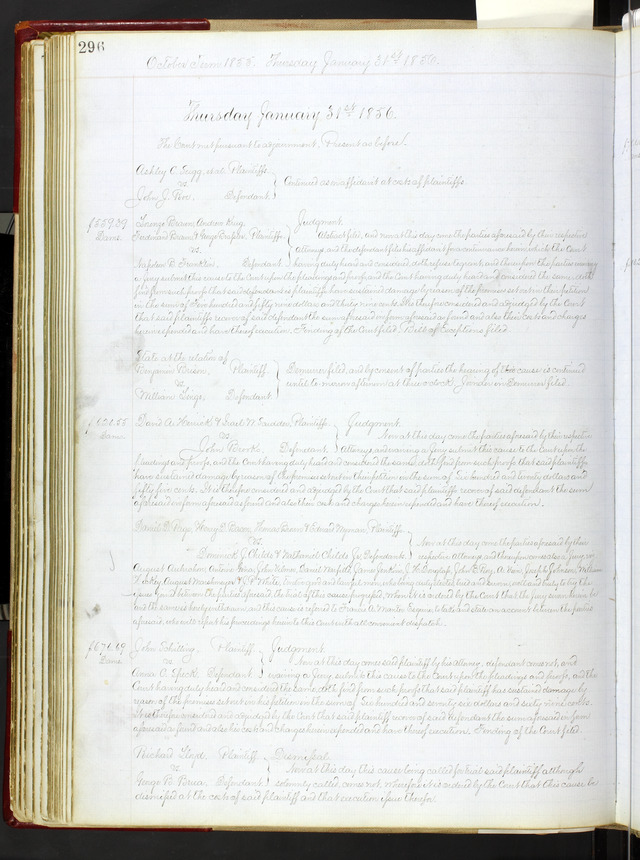 296
October Term 1855. Thursday January 31st 1856.
Thursday January 31st 1856.
The Court met pursuant to adjournment, Present as before.
Ashley C. et al. Plaintiffs
vs Continued on affidavit at costs of plaintiffs.
John J. Defendant
$559.39 George Brown, Andrew King, Judgment.
Dams. Plaintiffs filed, and now at this day come the parties aforesaid by their respective
vs. attorneys, and the defendant files his affidavit for a continuance hereon, which the Court
B. Franklin, Defendant having duly heard and considered, doth refuse to grant, and thereupon the parties waiving
a jury submit this cause to the Court upon the pleadings and proofs, and the Court having duly heard and considered the same, doth
find from such proofs that said defendant as plaintiffs have sustained damage by reason of the premises set out in their petition
in the sum of Five hundred and fifty nine dollars and thirty nine cents. It is therefore considered and adjudged by the Court
that said plaintiffs recover of said defendant the sum aforesaid in form aforesaid so found and also their costs and charges
herein expended and have thereof execution. Finding of the Court filed. Bill of Exceptions filed.
State at the relation of
Benjamin Plaintiff Demurrer filed, and by consent of parties the hearing of this cause is continued
vs until to-morrow afternoon at three o'clock. Joinder in Demurrer filed.
William Defendant
David A. & Israel W. Plaintiffs Judgment.
Dams. vs Now at this day come the parties aforesaid by their respective
John Brooks, Defendant Attorneys and waiving a Jury submit this cause to the Court upon the
pleadings and proofs, and the Court having duly heard and considered the same, doth find from such proofs that said plaintiffs
have sustained damage by reason of the premises set out in their petition in the sum of Six hundred and twenty dollars and
fifty five cents. It is therefore considered and adjudged by the Court that said plaintiffs recover of said defendant the sum
aforesaid in form aforesaid so found and also their costs and charges herein expended and have thereof execution.
David D. Page, Henry D. Bacon, Thomas Bacon & Edward Plaintiffs
vs. Now at this day come the parties aforesaid by their
Childs & Nathaniel Childs Jr, Defendants respective Attorneys, and thereupon comes also a jury, viz:
August Antoine John Daniel James Jenkins, John E. Joseph Johnson, William
August White, Twelve good and lawful men, who being duly elected, tried and sworn, well and truly to try the
issue joined between the parties aforesaid, the trial of this cause progressed, whereon it is ordered by the Court that the Jury sworn herein be
and the same is hereby withdrawn, and this cause is referred to Francis A. Esquire to take and state an account between the parties
aforesaid, who will report his proceedings herein to this Court with all convenient dispatch.
$676.69 John Schilling, Plaintiff Judgment.
Dams. vs. Now at this day comes said plaintiff by his attorney, defendant comes not, and
Anna C. Defendant waiving a jury, submits this cause to the Court upon the pleadings and proofs, and the
Court having duly heard and considered the same, doth find from such proofs that said plaintiff has sustained damage by
reason of the premises set out in his petition in the sum of Six hundred and seventy six dollars and sixty nine cents.
It is therefore considered and adjudged by the Court that said plaintiff recover of said defendant the sum aforesaid in form
aforesaid so found and also his costs and charges herein expended and have thereof execution. Finding of the Court filed.
Richard Lloyd, Plaintiff Dismissal.
vs. Now at this day this cause being called for trial said plaintiff although
George B. Defendant solemnly called, comes not. Wherefore it is ordered by the Court that this cause be
dismissed at the costs of said plaintiff and that execution issue therefor.